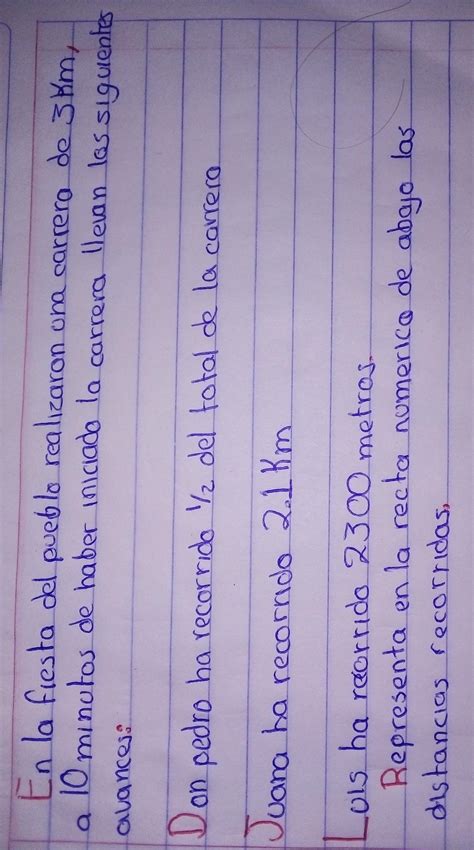 En la fiesta del pueblo realizaron una carrera de 3 Km,
a 10 minutos de haber iniciado la carrera llevan los siguientes
avances:
Don pedro ha recorrido 1/2 del total de la carrera
Juana ha recorrido 2.1 Km
Luis ha recorrido 2300 metros.
Representa en la recta numerica de abajo las
distancias recorridas.